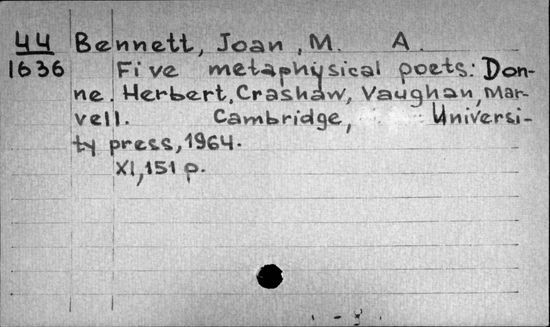 44 Bennett, Joan, M. A.
1636 Five metaphysical poets: Don-
ne. Herbert, Crashaw, Vaughan, Mar-
vell. Cambridge, Universi-
ty press, 1964.
XI, 151 p.